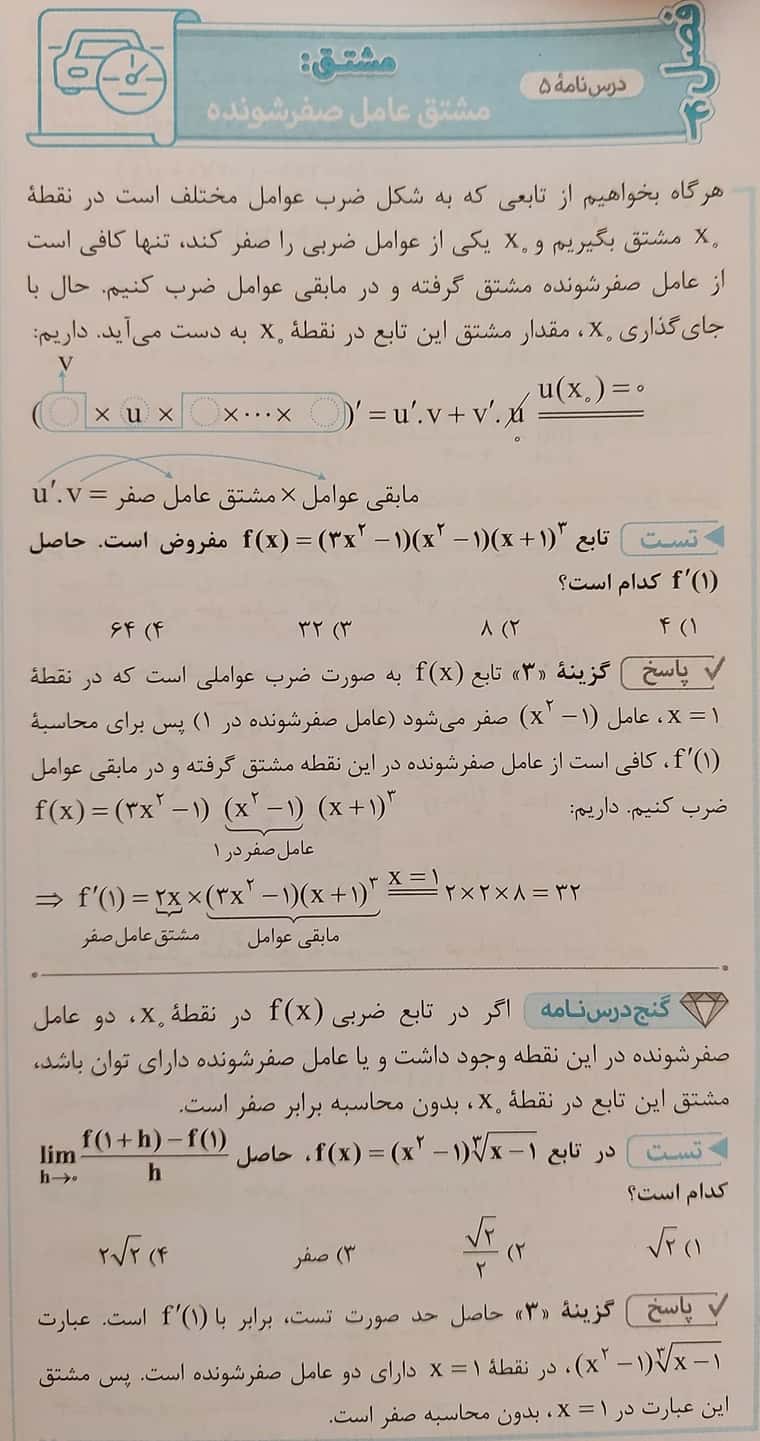 فصل ۴
درس‌نامهٔ ۵
مشتق:
مشتق عامل صفرشونده
هرگاه بخواهیم از تابعی که به شکل ضرب عوامل مختلف است در نقطهٔ
x₀ مشتق بگیریم و x₀ یکی از عوامل ضربی را صفر کند، تنها کافی است
از عامل صفرشونده مشتق گرفته و در مابقی عوامل ضرب کنیم. حال با
جای‌گذاری x₀، مقدار مشتق این تابع در نقطهٔ x₀ به دست می‌آید. داریم:
v
(○ × u × ○ ×···× ○)′ = u′.v + v′.u  u(x₀)=۰
۰
u′.v = مشتق عامل صفر × مابقی عوامل
تست تابع f(x) = (۳x² − ۱)(x² − ۱)(x + ۱)³ مفروض است. حاصل
f′(۱) کدام است؟
۱) ۴ ۲) ۸ ۳) ۳۲ ۴) ۶۴
پاسخ گزینهٔ «۳» تابع f(x) به صورت ضرب عواملی است که در نقطهٔ
x = ۱، عامل (x² − ۱) صفر می‌شود (عامل صفرشونده در ۱) پس برای محاسبهٔ
f′(۱)، کافی است از عامل صفرشونده در این نقطه مشتق گرفته و در مابقی عوامل
ضرب کنیم. داریم: f(x) = (۳x² − ۱) (x² − ۱) (x + ۱)³
عامل صفر در ۱
⇒ f′(۱) = ۲x × (۳x² − ۱)(x + ۱)³ x = ۱ ۲×۲×۸ = ۳۲
مشتق عامل صفر مابقی عوامل
گنج درس‌نامه اگر در تابع ضربی f(x) در نقطهٔ x₀، دو عامل
صفرشونده در این نقطه وجود داشت و یا عامل صفرشونده دارای توان باشد،
مشتق این تابع در نقطهٔ x₀، بدون محاسبه برابر صفر است.
تست در تابع f(x) = (x² − ۱)∛(x − ۱)، حاصل lim h→۰ (f(۱+h) − f(۱))/h
کدام است؟
۱) √۲ ۲) √۲/۲ ۳) صفر ۴) ۲√۲
پاسخ گزینهٔ «۳» حاصل حد صورت تست، برابر با f′(۱) است. عبارت
(x² − ۱)∛(x − ۱)، در نقطهٔ x = ۱ دارای دو عامل صفرشونده است. پس مشتق
این عبارت در x = ۱، بدون محاسبه صفر است.